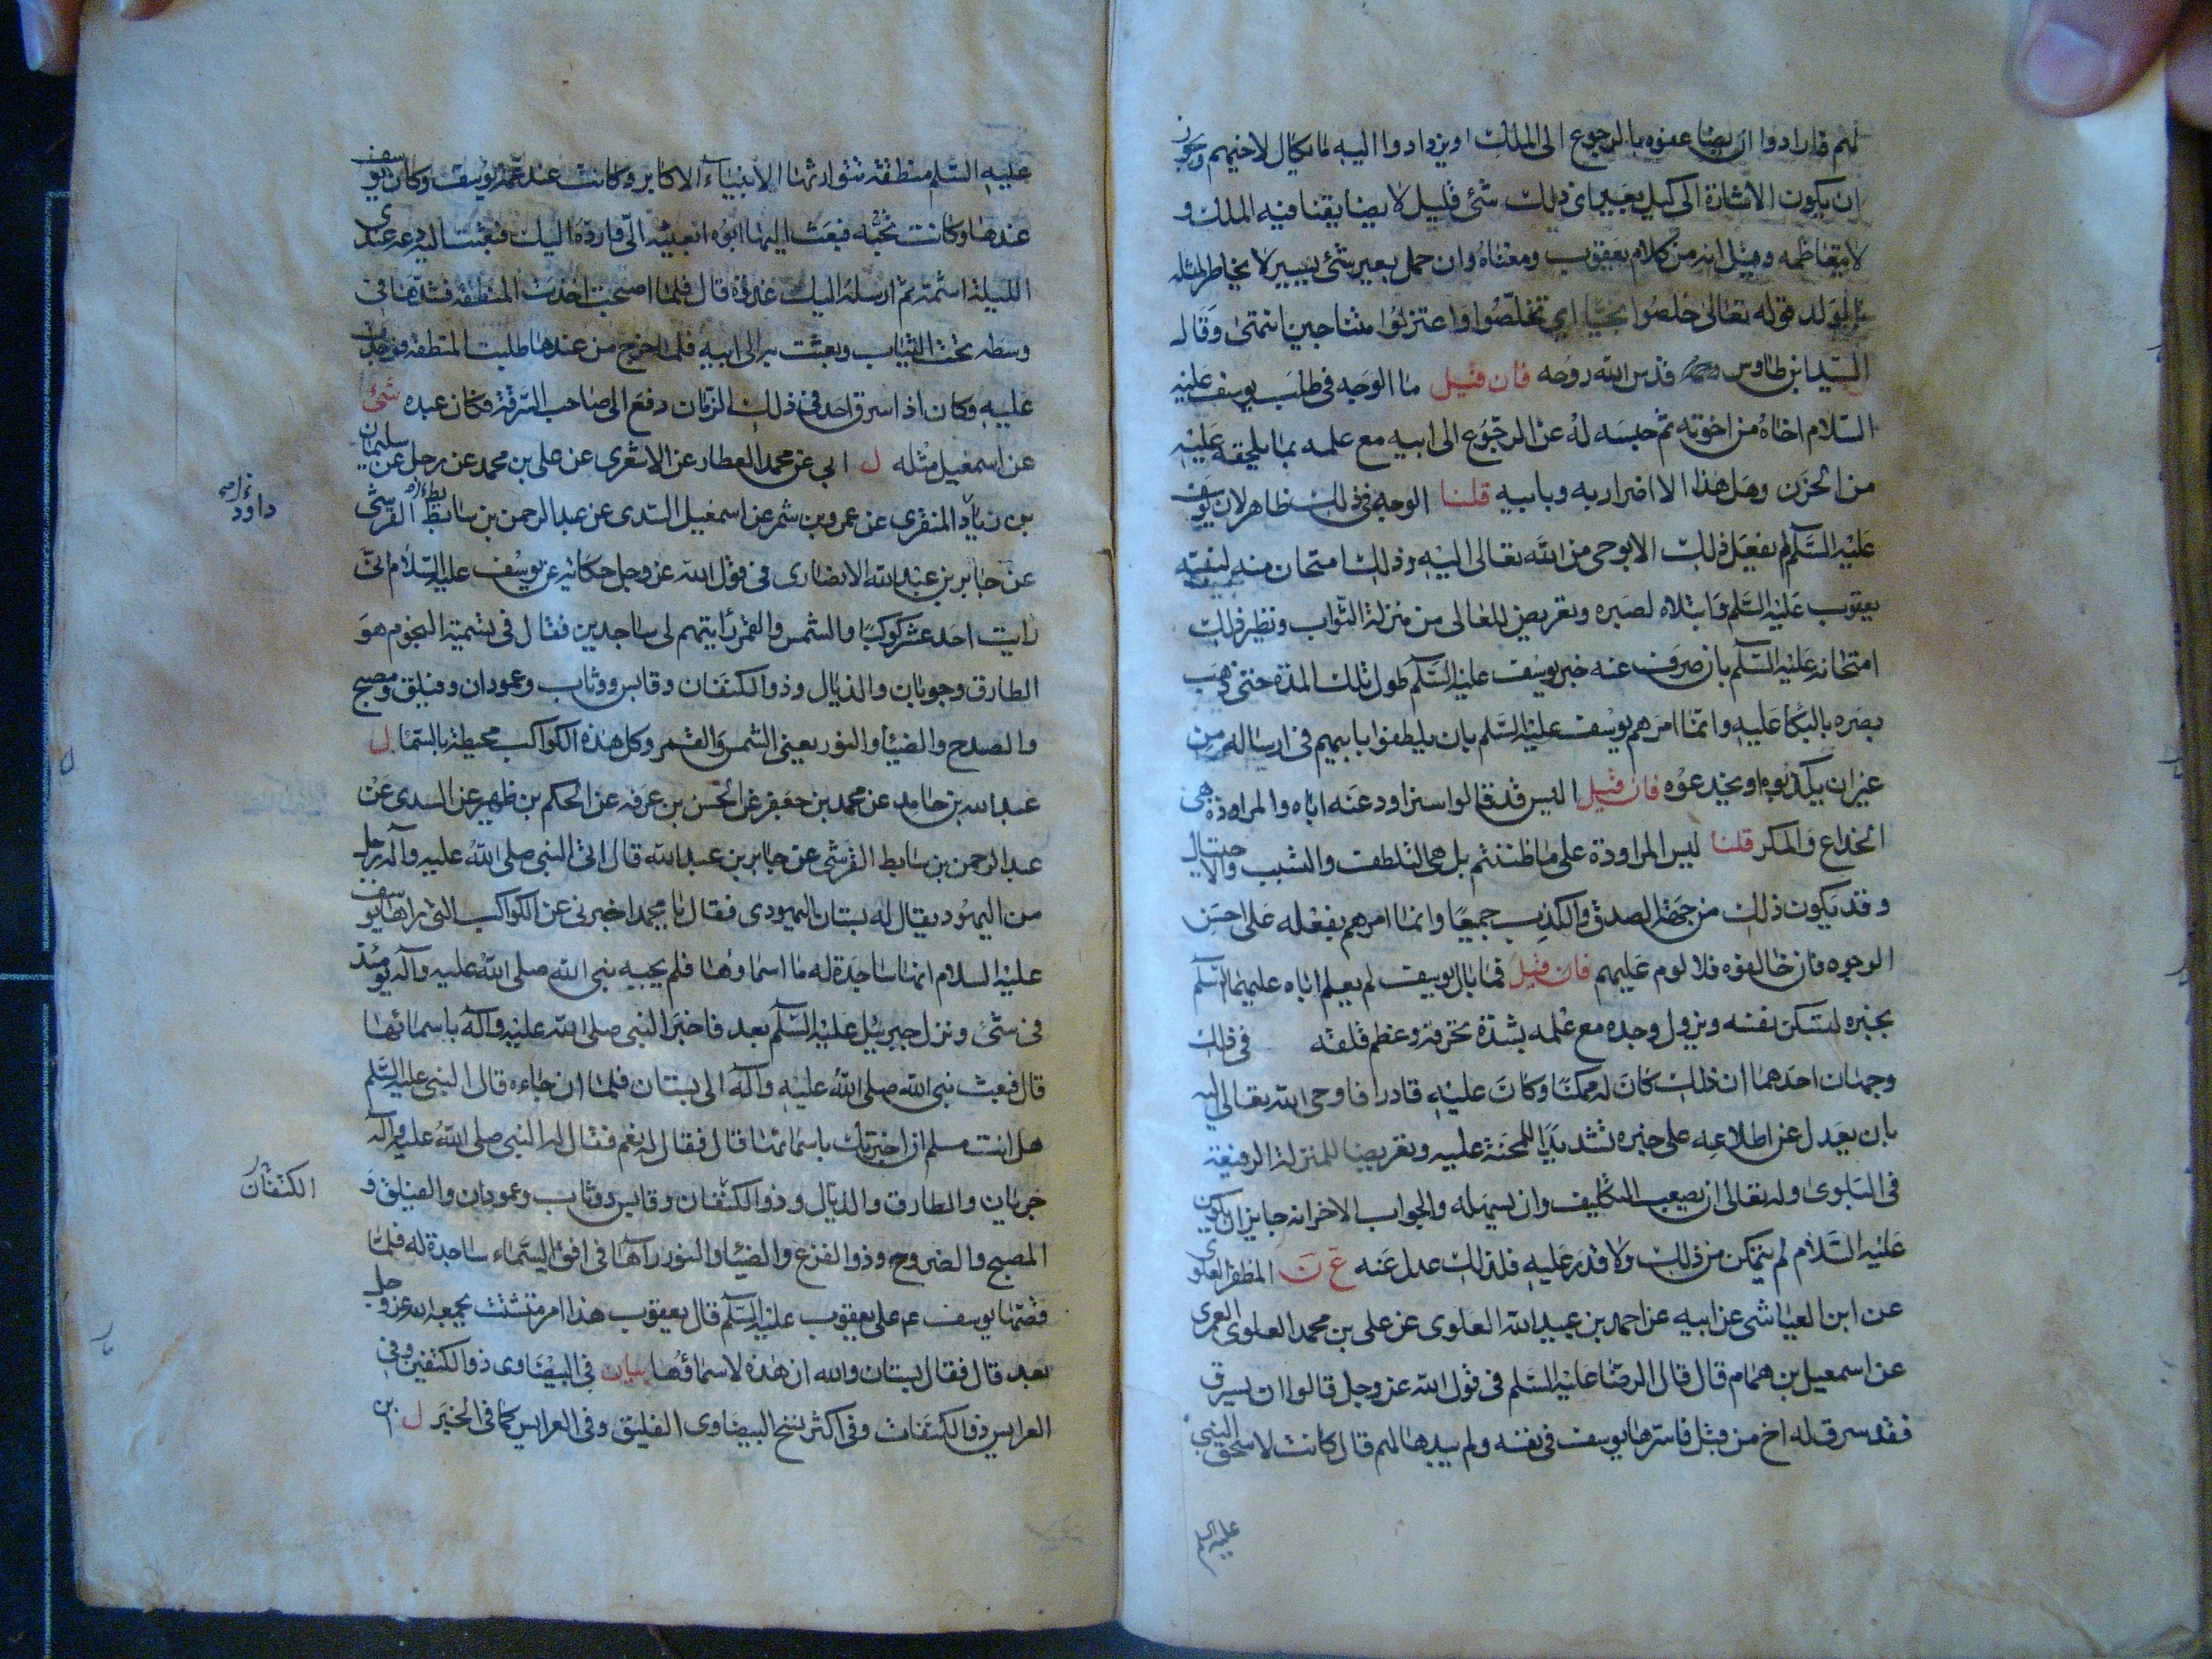 لهم فارادوا ان يضاعفوه بالرجوع الى الملك او يزدادوا اليه ما يكال لاخيهم ويجوز
ان يكون الاشارة الى كيل بعير اى ذلك شئ قليل لا يضايقنا فيه الملك و
لا يتعاظمه وقيل انه من كلام يعقوب ومعناه وان حمل بعير شئ يسير لا يخاطر لمثله
بالولد قوله تعالى خلصوا نجيا اى تخلصوا واعتزلوا متناجين انتهى وقال
السيد ابن طاوس قدس الله روحه فان قيل ما الوجه فى طلب يوسف عليه
السلام اخاه من اخوته ثم حبسه له عن الرجوع الى ابيه مع علمه بما يلحقه عليه
من الحزن وهل هذا الا اضرار به وبابيه قلنا الوجه فى ذلك ظاهر لان يوسف
عليه السلم لم يفعل ذلك الا بوحى من الله تعالى اليه وذلك امتحان منه لنبيه
يعقوب عليه السلم وابتلاء لصبره وتعريض للعالى من منزلة الثواب ونظير ذلك
امتحانه عليه السلم بان صرف عنه خبر يوسف عليه السلم طول تلك المدة حتى ذهب
بصره بالبكا عليه وانما امرهم يوسف عليه السلم بان يلطفوا بابيهم فى ارساله من
غير ان يكذبوه او يخدعوه فان قيل اليس قد قالوا سنراود عنه اباه والمراودة هى
الخداع والمكر قلنا ليس المراودة على ما ظننتم بل هى التلطف والتسبب والاحتيال
وقد يكون ذلك من جهة الصدق والكذب جميعا وانما امرهم بفعله على احسن
الوجوه فان خالفوه فلا لوم عليهم فان قيل فما بال يوسف لم يعلم اباه عليهما السلم
بخبره لتسكن نفسه ويزول وجده مع علمه بشدة تحرقه وعظم قلقه فى ذلك
وجهان احدهما ان ذلك كان له ممكنا وكان عليه قادرا فاوحى الله تعالى اليه
بان يعدل عن اطلاعه على خبره تشديدا للمحنة عليه وتعريضا للمنزلة الرفيعة
فى البلوى وله تعالى ان يصعب التكليف وان يسهله والجواب الاخر انه جايز ان يكون
عليه السلام لم يتمكن من ذلك ولا قدر عليه فلذلك عدل عنه ع ن المظفر العلوى
عن ابن العياشى عن ابيه عن احمد بن عبيد الله العلوى عن على بن محمد العلوى العمرى
عن اسمعيل بن همام قال قال الرضا عليه السلم فى قول الله عز وجل قالوا ان يسرق
فقد سرق له اخ من قبل فاسرها يوسف فى نفسه ولم يبدها لهم قال كانت لاسحق النبى
عليه السلم
عليه السلم منطقة يتوارثها الانبياء الاكابر وكانت عند عمة يوسف وكان يوسف
عندها وكانت تحبه فبعث اليها ابوه ابعثيه الى وارده اليك فبعثت اليه دعه عندى
الليلة اشمه ثم ارسله اليك غدوة قال فلما اصبحت اخذت المنطقة فشدتها فى
وسطه تحت الثياب وبعثت به الى ابيه فلما خرج من عندها طلبت المنطقة فوجدت
عليه وكان اذا سرق احد فى ذلك الزمان دفع الى صاحب السرقة فكان عبده شئ
عن اسمعيل مثله ل ابى عن محمد العطار عن الاشعرى عن على بن محمد عن رجل عن سليمان
بن زياد المنقرى عن عمرو بن شمر عن اسمعيل السدى عن عبد الرحمن بن سابط القرشى
داود
عن جابر بن عبد الله الانصارى فى قول الله عز وجل حكاية عن يوسف عليه السلام انى
رايت احد عشر كوكبا والشمس والقمر رايتهم لى ساجدين فقال فى تسمية النجوم هو
الطارق وجوبان والذيال وذو الكتفان وقابس ووثاب وعمودان وفيلق ومصبح
والصدح والضيا والنور يعنى الشمس والقمر وكل هذه الكواكب محيطة بالسما ل
عبد الله بن حامد عن محمد بن جعفر عن الحسن بن عرفه عن الحكم بن ظهير عن السدى عن
عبد الرحمن بن سابط القرشى عن جابر بن عبد الله قال اتى النبى صلى الله عليه وآله رجل
من اليهود يقال له بستان اليهودى فقال يا محمد اخبرنى عن الكواكب التى راها يوسف
عليه السلام انها ساجدة له ما اسماوها فلم يجبه نبى الله صلى الله عليه وآله يومئذ
فى شئ ونزل جبرئيل عليه السلم بعد فاخبر النبى صلى الله عليه وآله باسمائها
قال فبعث نبى الله صلى الله عليه وآله الى بستان فلما ان جاءه قال النبى عليه السلم
هل انت مسلم ان اخبرتك باسمائها قال فقال له نعم فقال له النبى صلى الله عليه وآله
جربان والطارق والذيال وذو الكتفان وقابس ووثاب وعمودان والفيلق و
الكنفان
المصبح والضروح وذو الفرع والضيا والنور رآها فى افق السماء ساجدة له فلما
قصها يوسف ع على يعقوب عليه السلم قال يعقوب هذا امر متشتت يجمعه الله عز وجل
بعد قال فقال بستان والله ان هذه لاسماؤها بيان فى البيضاوى ذو الكتفين وفى
العرايس ذو الكتفات وفى اكثر نسخ البيضاوى الفليق وفى العرايس كما فى الخبر ل بن